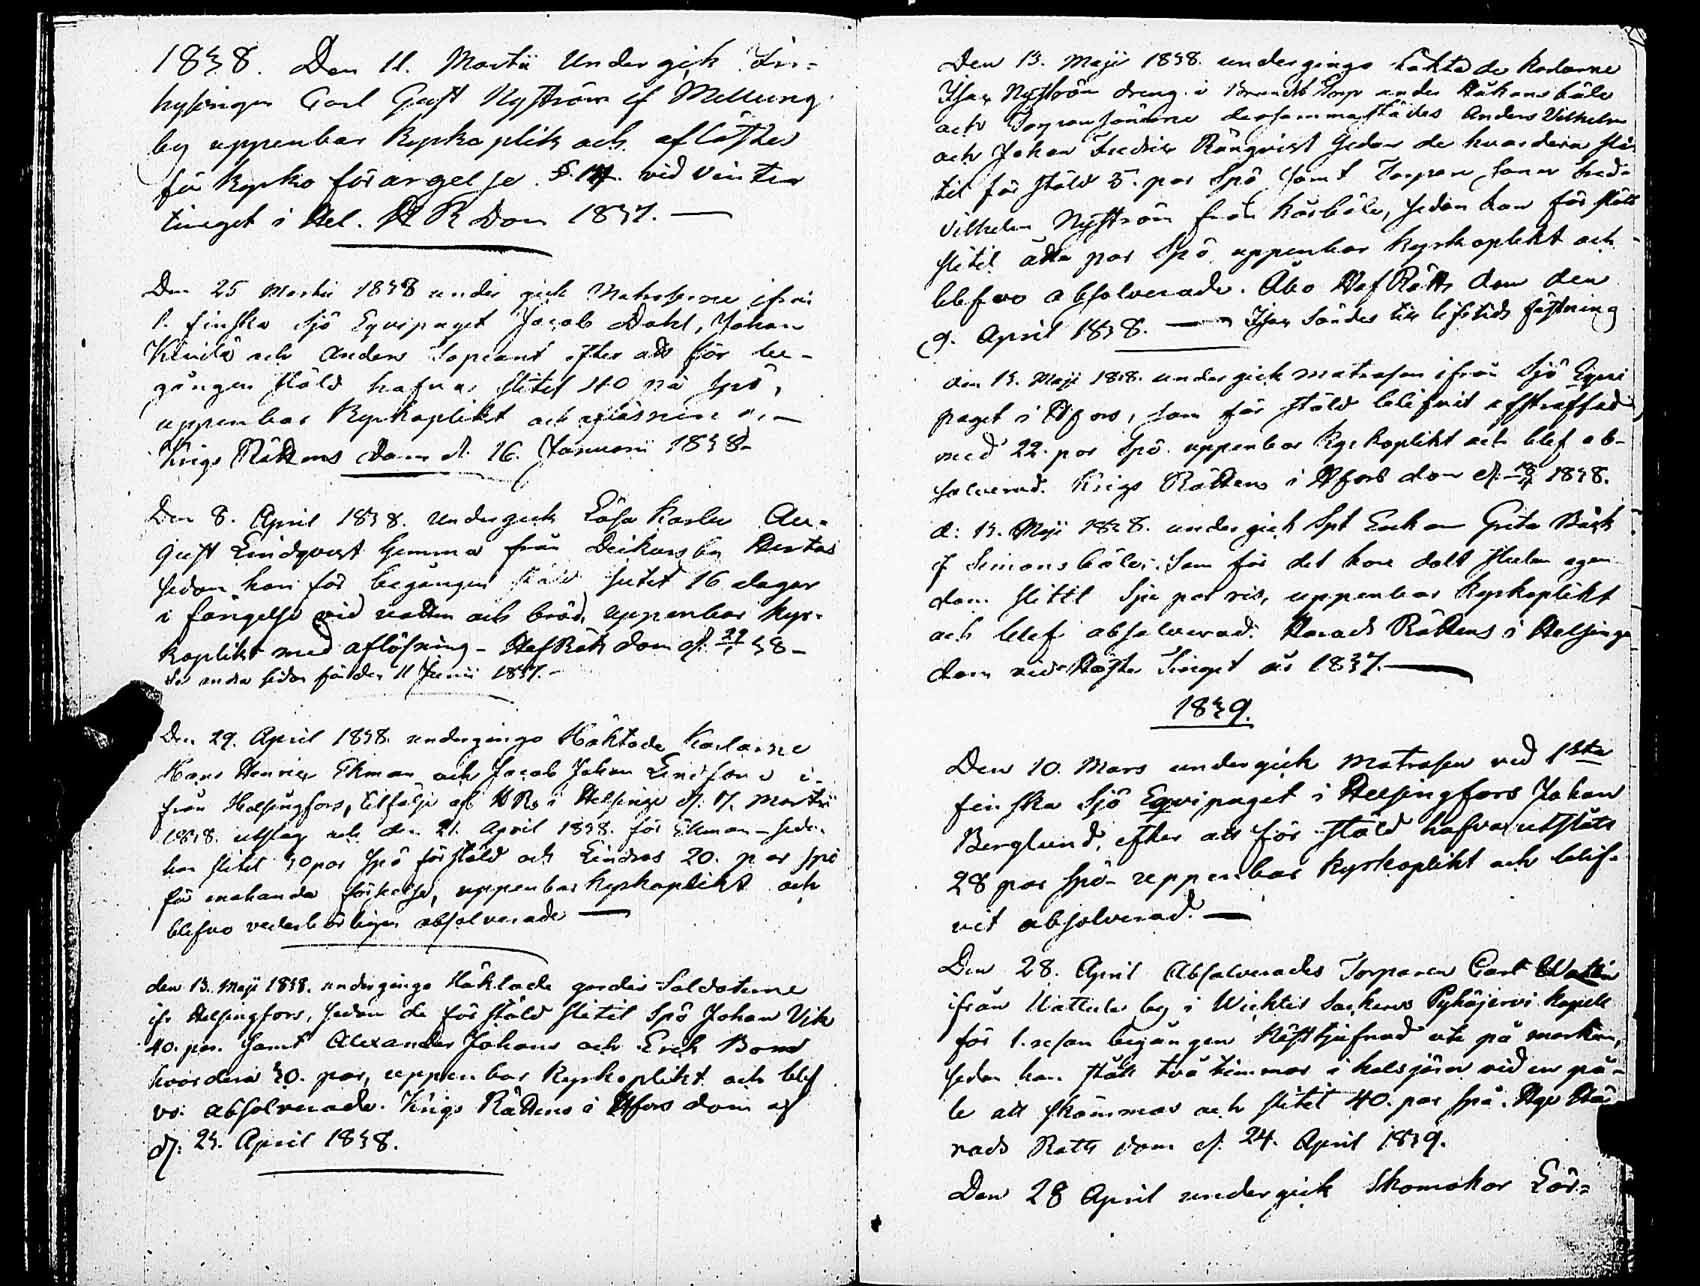 1838. Den 11. Martii Undergick In-
hysingen Carl Gust Nyström if Mellung
by uppenbar kyrkoplikt och aflöstes
för kyrko förargelse. vid vinter
tinget i Hel. Dom 1837. —
Den 25 Martii 1838 under gick Matroserne ifrån
1. finska Sjö Eqvipaget Jacob Dahl, Johan
och Anders Sapient efter att för be-
gången stöld hafva slitit 40 pa Spö,
uppenbar Kyrkoplikt och
Krigs Rättens dom d. 16. Januarii 1838 -
Den 8. April 1838. Undergick Lösa Karlen Au-
gust Lindqvist hemma från by
sedan han för begången stöld sutit 16 dagar
i fängelse vid vatten och bröd, uppenbar kyr-
koplikt med aflösning - HofRätts dom d: 38 -
Se andra sidan för den 11 Junii 1837. -
Den 29. April 1838. undergingo Häktade Karlarne
Hans Henric Ekman och Jacob Johan i-
från Helsingfors, af i Helsinge d. 17. Martii
1838. utslag och den 21. April 1838. för Ekman - sedan
han slitit 30 par Spö för stöld och 20. par spö
för enahanda förseelse, uppenbar kyrkoplikt och
blefvo vederbörligen absolverade —
den 13. Maji 1838. undergingo Häktade gardes Soldaterne
ifr Helsingfors, sedan de för stöld slitit Spö Johan Vik
40. par. samt Alexander Johans och Erik Bond
hvardera 30. par, uppenbar Kyrkoplikt och blef
vo absolverade. Krigs Rättens i Hfors dom af
d: 23. April 1838.
Den 13. Maji 1838. undergingo häktade karlarne
Isac Nyström dreng i Torp under Håkansböle
och dersammastädes Anders Vilhelm
och Johan Fredric Rönqvist sedan de hvardera sli-
tit för stöld 5. par Spö samt
Vilhelm Nyström från sedan han för stöld
slitit åtta par Spö uppenbar kyrkoplikt och
blefvo absolverade. Åbo HofRätts dom den
9. April 1838. — Isac sändes till lifstids fästning
den 13. Maji 1838. undergick matrosen ifrån Sjö Eqvi
paget i Hfors, som för stöld blifvit afstraffad
med 22. par Spö uppenbar Kyrkoplikt och blef ab-
solverad. Krigs Rättens i Hfors dom d. 1838.
d: 13. Maji 1838. undergick Spt Enkan Greta Bäck
if Simonsböle. Som för det hon dolt stulen egen
dom slitit sju par ris, uppenbar kyrkoplikt
och blef absolverad. Härads Rättens i Helsinge
dom vid Höste Tinget år 1837. —
1839.
Den 10. Mars undergick matrosen vid 1sta
finska Sjö Eqvipaget i Helsingfors Johan
Berglund, efter att för stöld hafva utstått
28 par spö - uppenbar Kyrkoplikt och blif-
vit absolverad. —
Den 28. April Absolverades Torparen Carl
ifrån by i Wichtis Sockens Pyhäjervi kapell
för 1. resan begången ute på marken,
sedan han stått två timmar i halsjärn vid en på-
le att skämmas och slitit 40. par spö. Hä-
rads Rätts dom d. 24. April 1839.
Den 28 April undergick Skomakar Lär-